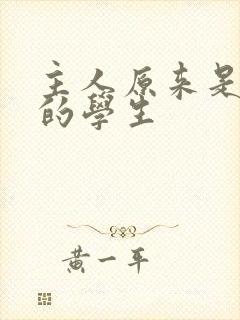 主人原来是
的學生
黄一平